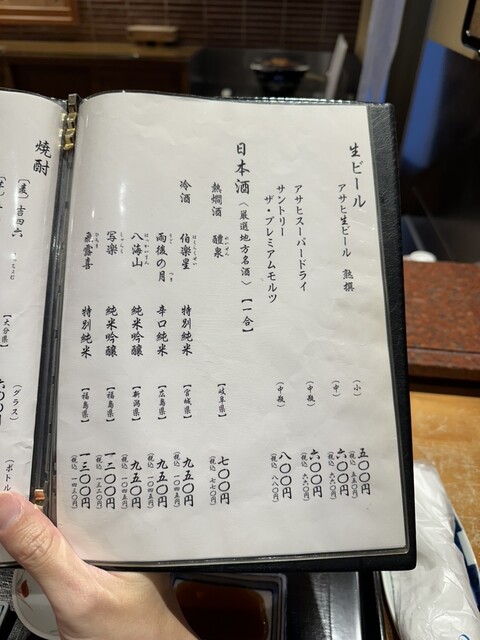 生ビール
アサヒ生ビール 熟撰 (小) 五〇〇円 (税込 五五〇円)
(中) 六〇〇円 (税込 六六〇円)
アサヒスーパードライ (中瓶) 六〇〇円 (税込 六六〇円)
サントリー
ザ・プレミアムモルツ (中瓶) 八〇〇円 (税込 八八〇円)
日本酒 〈厳選地方名酒〉【一合】
熱燗酒 醴泉 れいせん 【岐阜県】 七〇〇円 (税込 七七〇円)
冷酒 伯楽星 はくらくせい 特別純米 【宮城県】 九五〇円 (税込 一〇四五円)
雨後の月 うごのつき 辛口純米 【広島県】 九五〇円 (税込 一〇四五円)
八海山 はっかいさん 純米吟醸 【新潟県】 九五〇円 (税込 一〇四五円)
写楽 しゃらく 純米吟醸 【福島県】 一二〇〇円 (税込 一三二〇円)
飛露喜 ひろき 特別純米 【福島県】 一三〇〇円 (税込 一四三〇円)
焼酎
〔麦〕 吉四六 【大分県】 (グラス) 六〇〇円
(ボトル